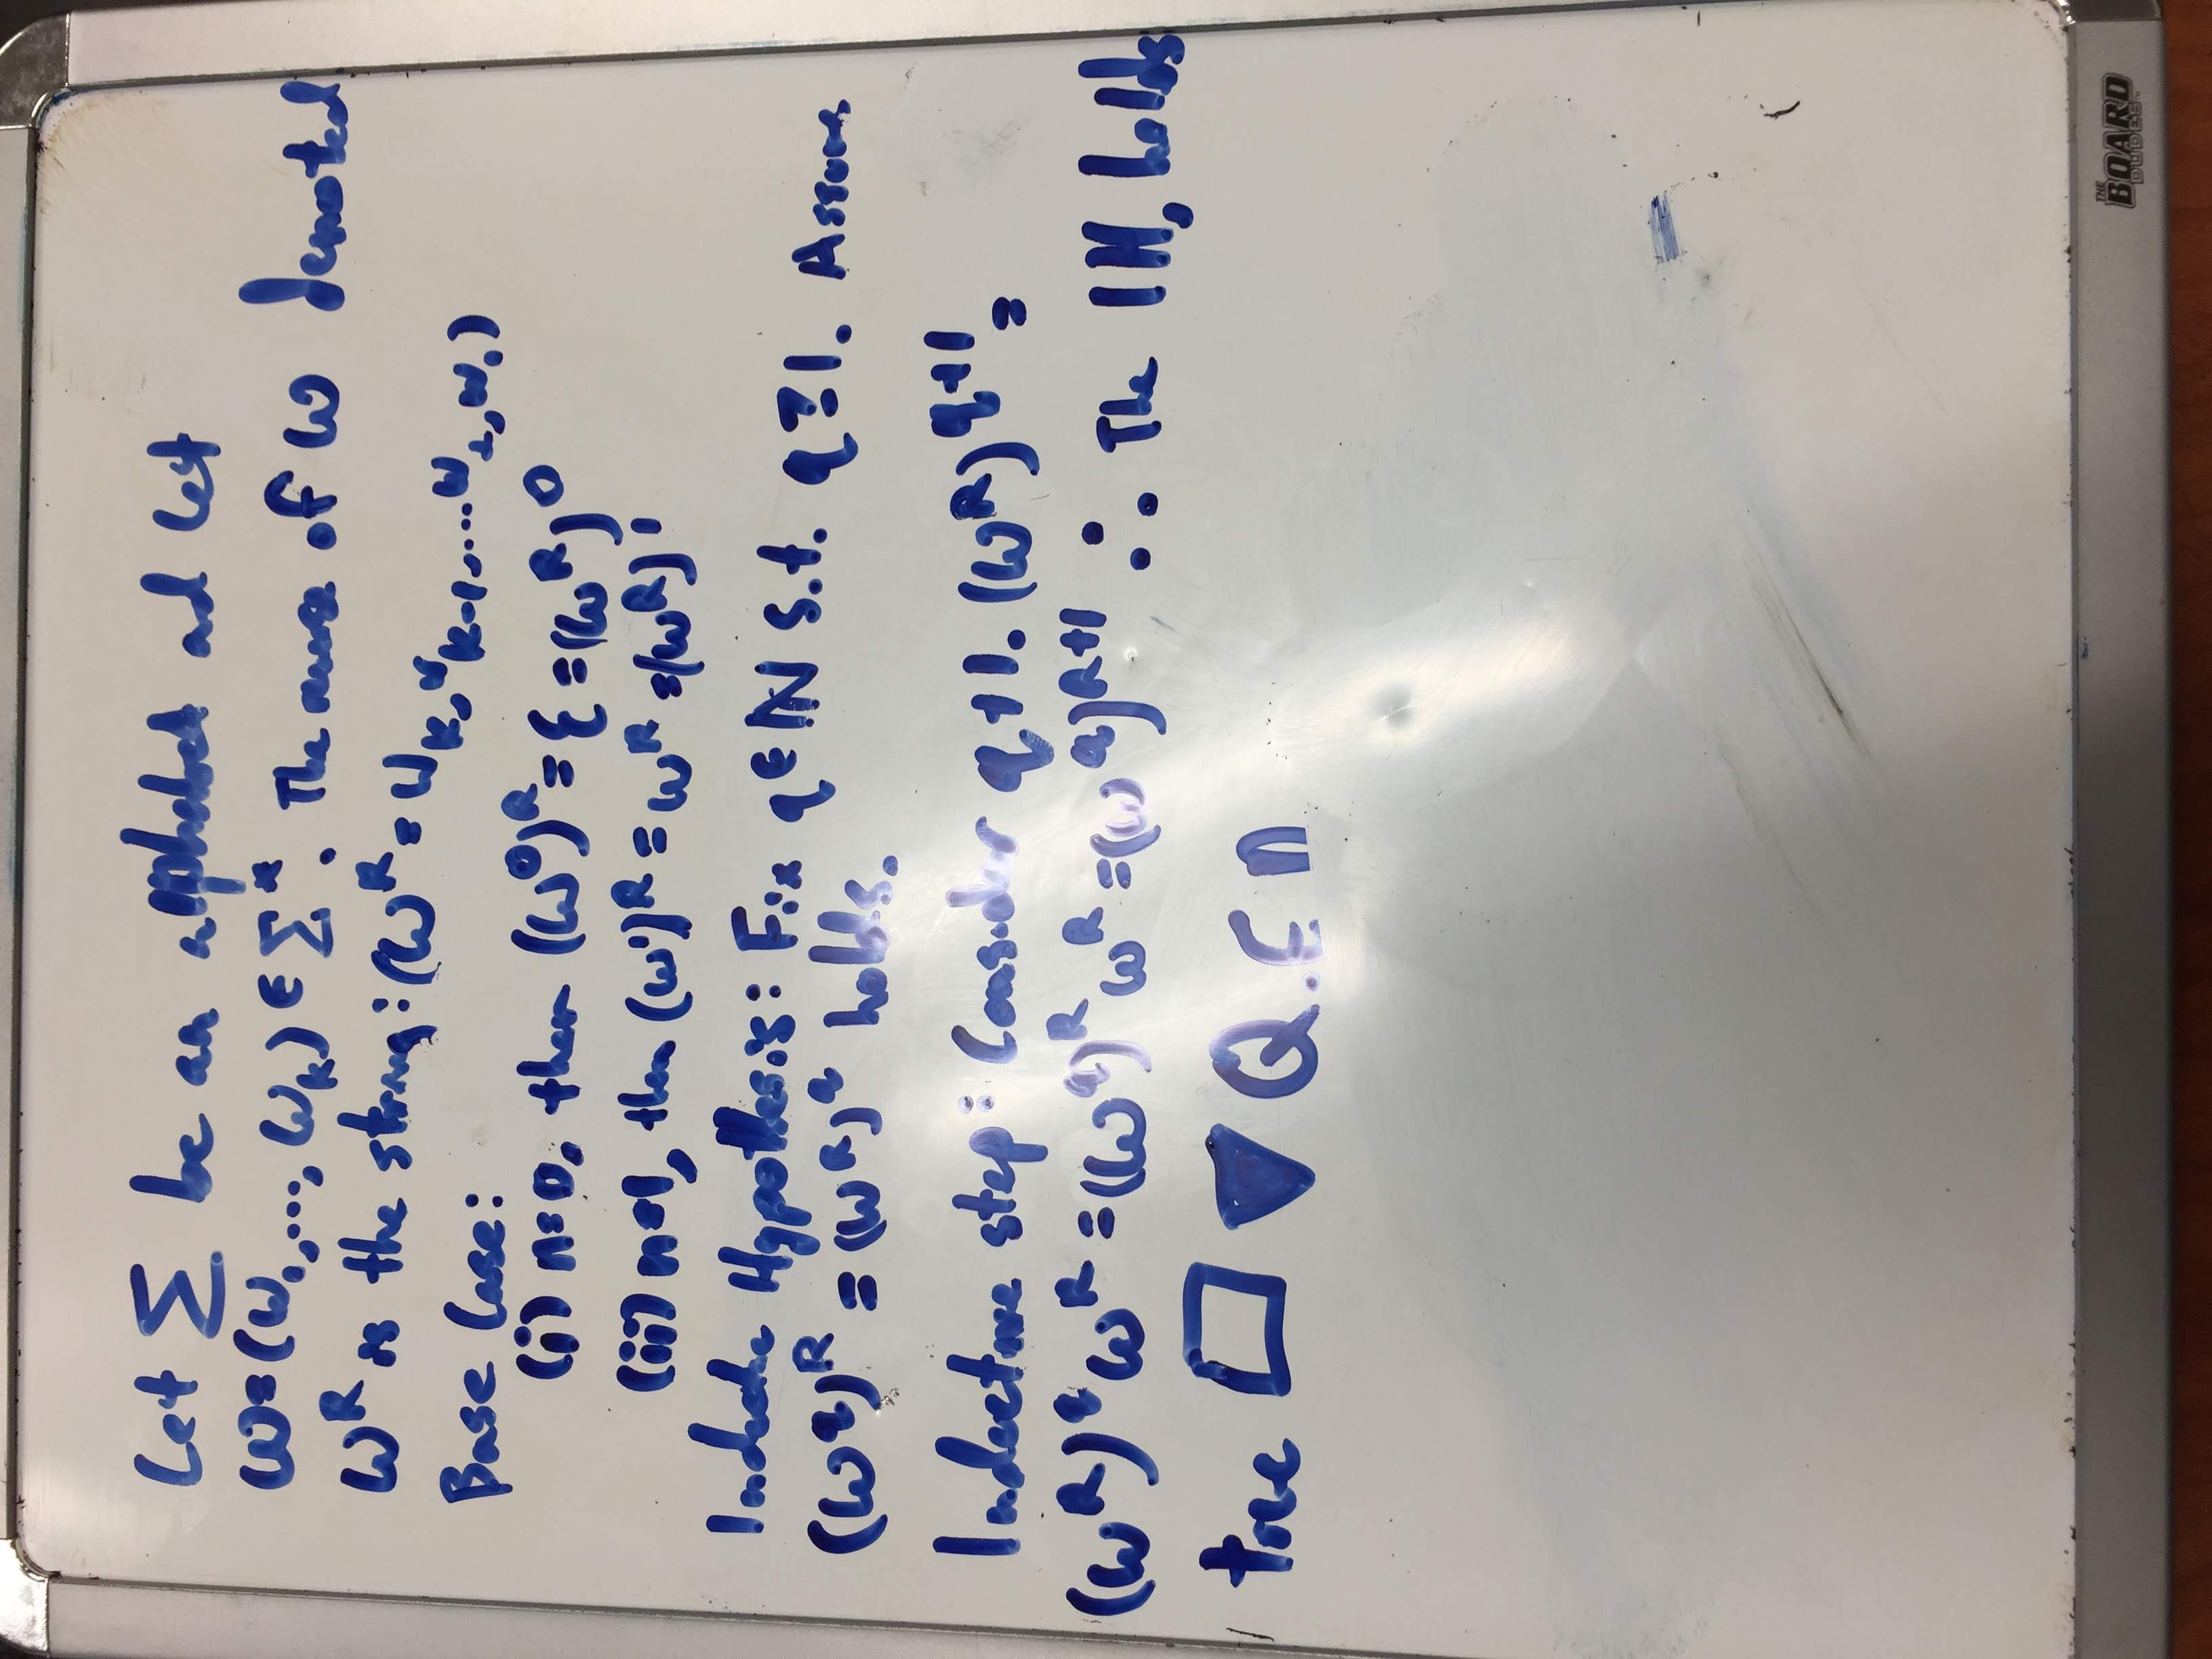 Let Σ be an alphabet and let
ω=(ω₁,...,ωₖ) ∈ Σ*. The reverse of ω denoted
ωᴿ is the string: (ωᴿ = ωₖ,ωₖ₋₁,...ω₂,ω₁)
Base Case:
(i) n=0, then (ω⁰)ᴿ = ε = (ωᴿ)⁰
(ii) n=1, then (ω¹)ᴿ = ωᴿ = (ωᴿ)¹
Inductive Hypothesis: Fix q ∈ ℕ s.t. q ≥ 1. Assume
(ω^q)^R = (ω^R)^q holds.
Inductive step: Consider q+1. (ω^R)^{q+1} =
(ω^R)^q ω^R = (ω^q)^R ω^R = (ω^q)^{R+1} ∴ The IH, holds
true □ ▼ Q.E D
THE
BOARD
DUDES